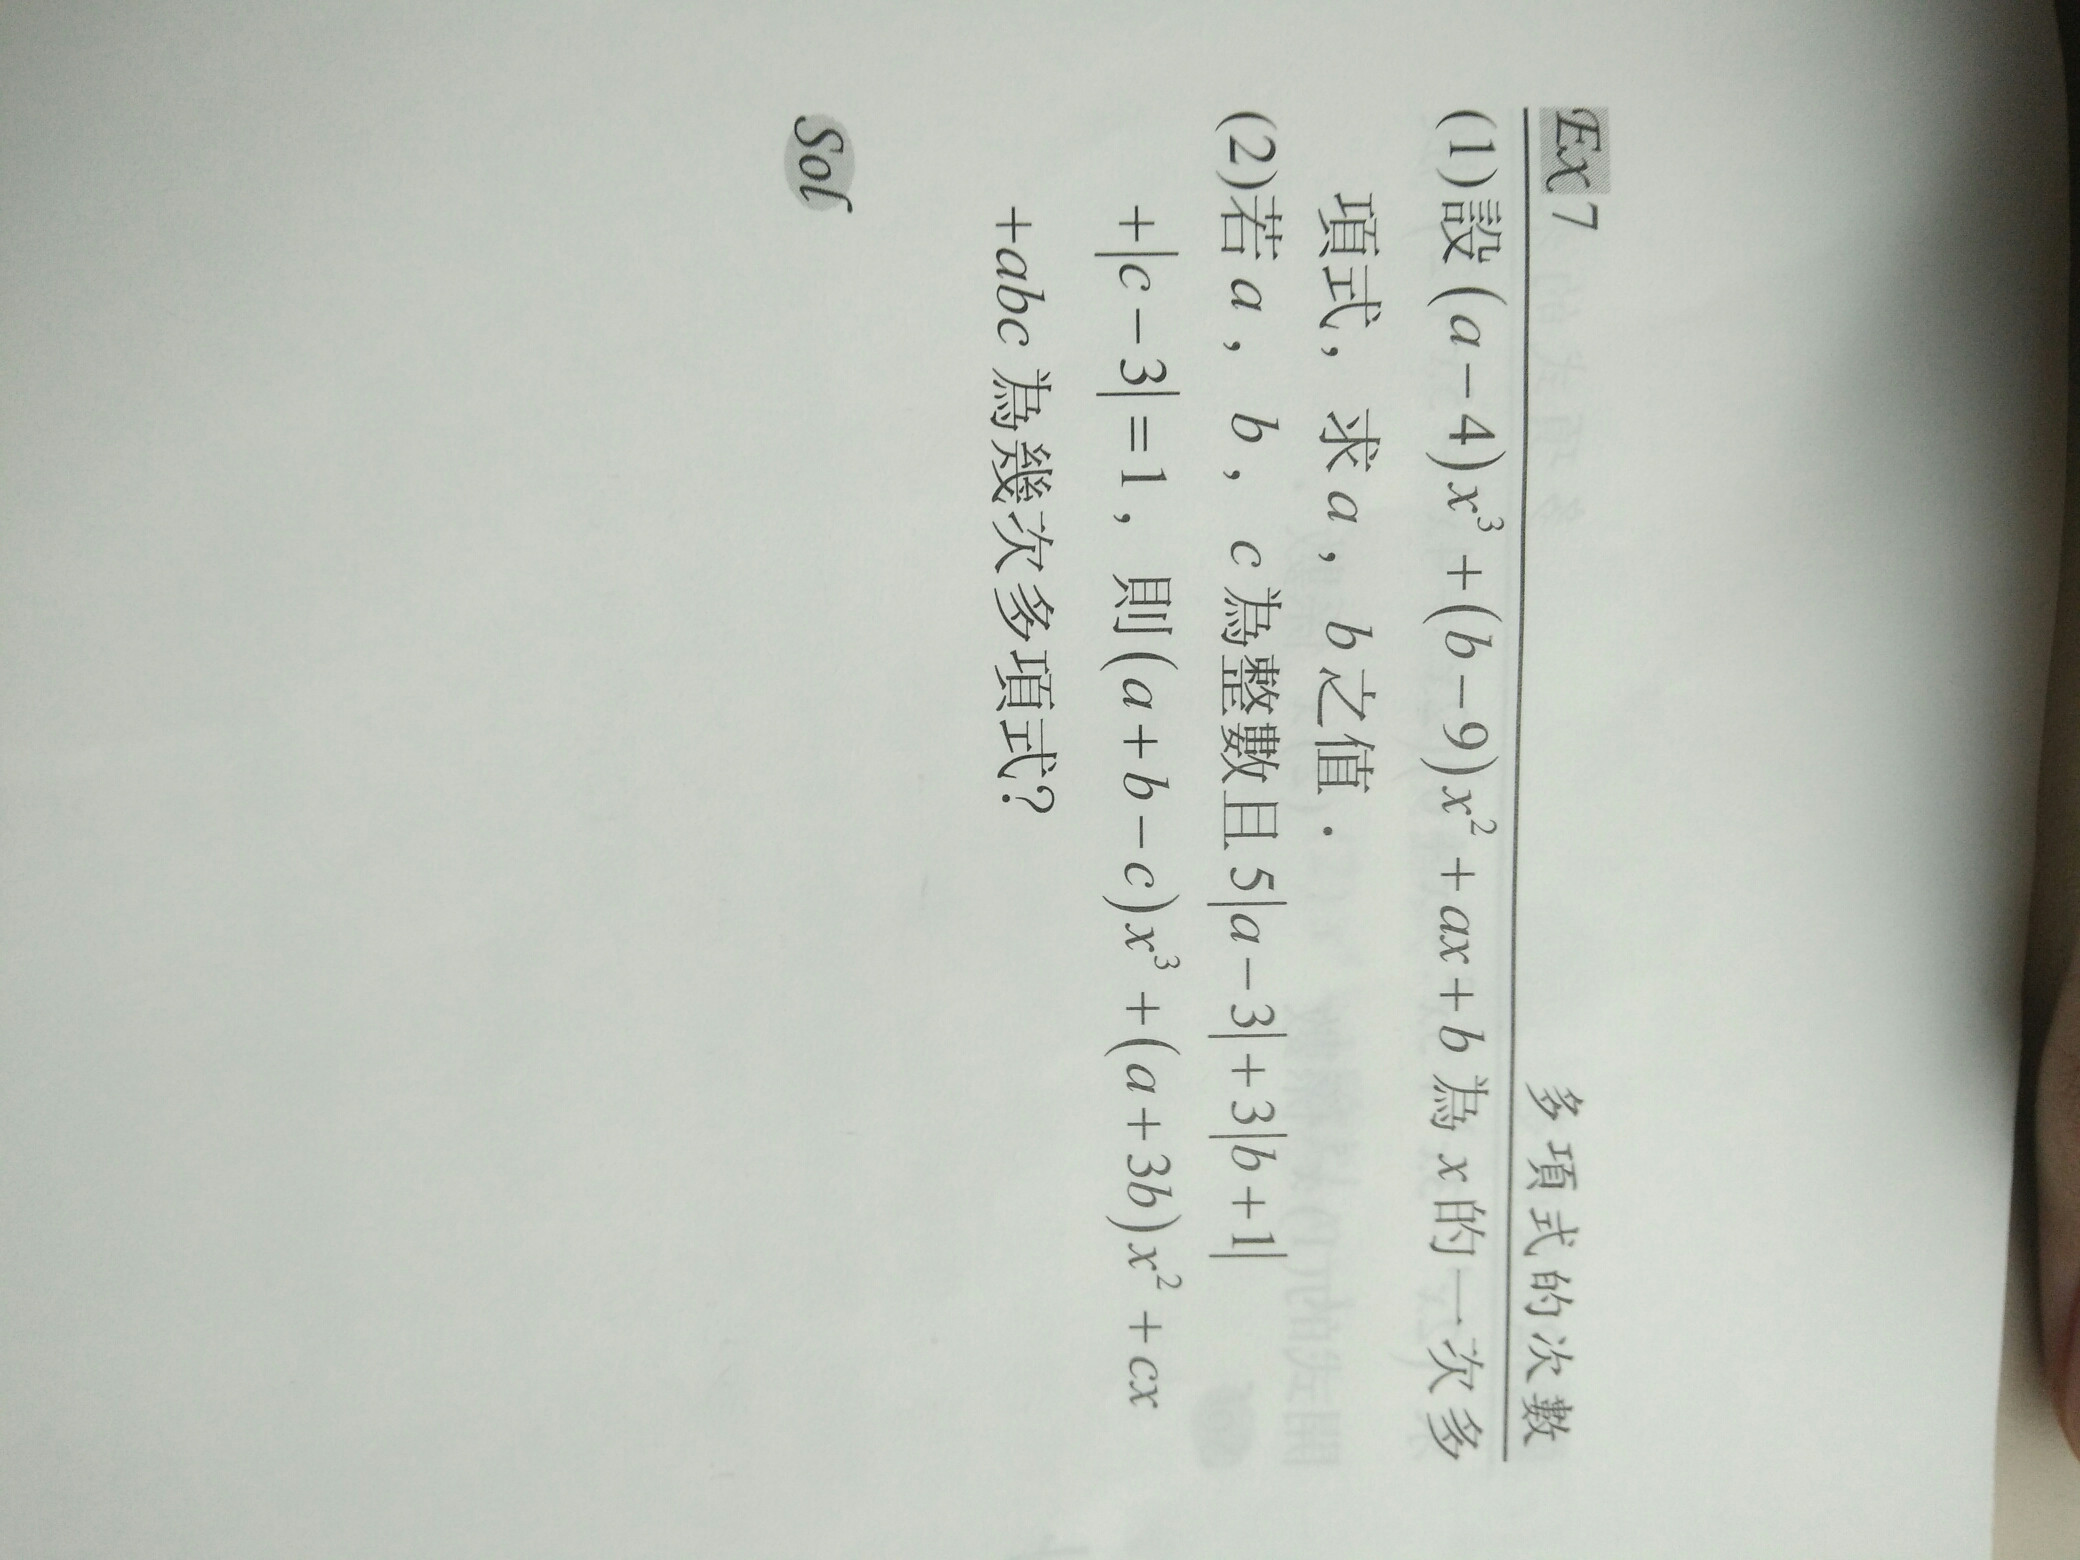 Ex 7 多項式的次數
(1)設(a-4)x³+(b-9)x²+ax+b為x的一次多
項式，求a，b之值．
(2)若a，b，c為整數且5|a-3|+3|b+1|
+|c-3|=1，則(a+b-c)x³+(a+3b)x²+cx
+abc為幾次多項式?
Sol